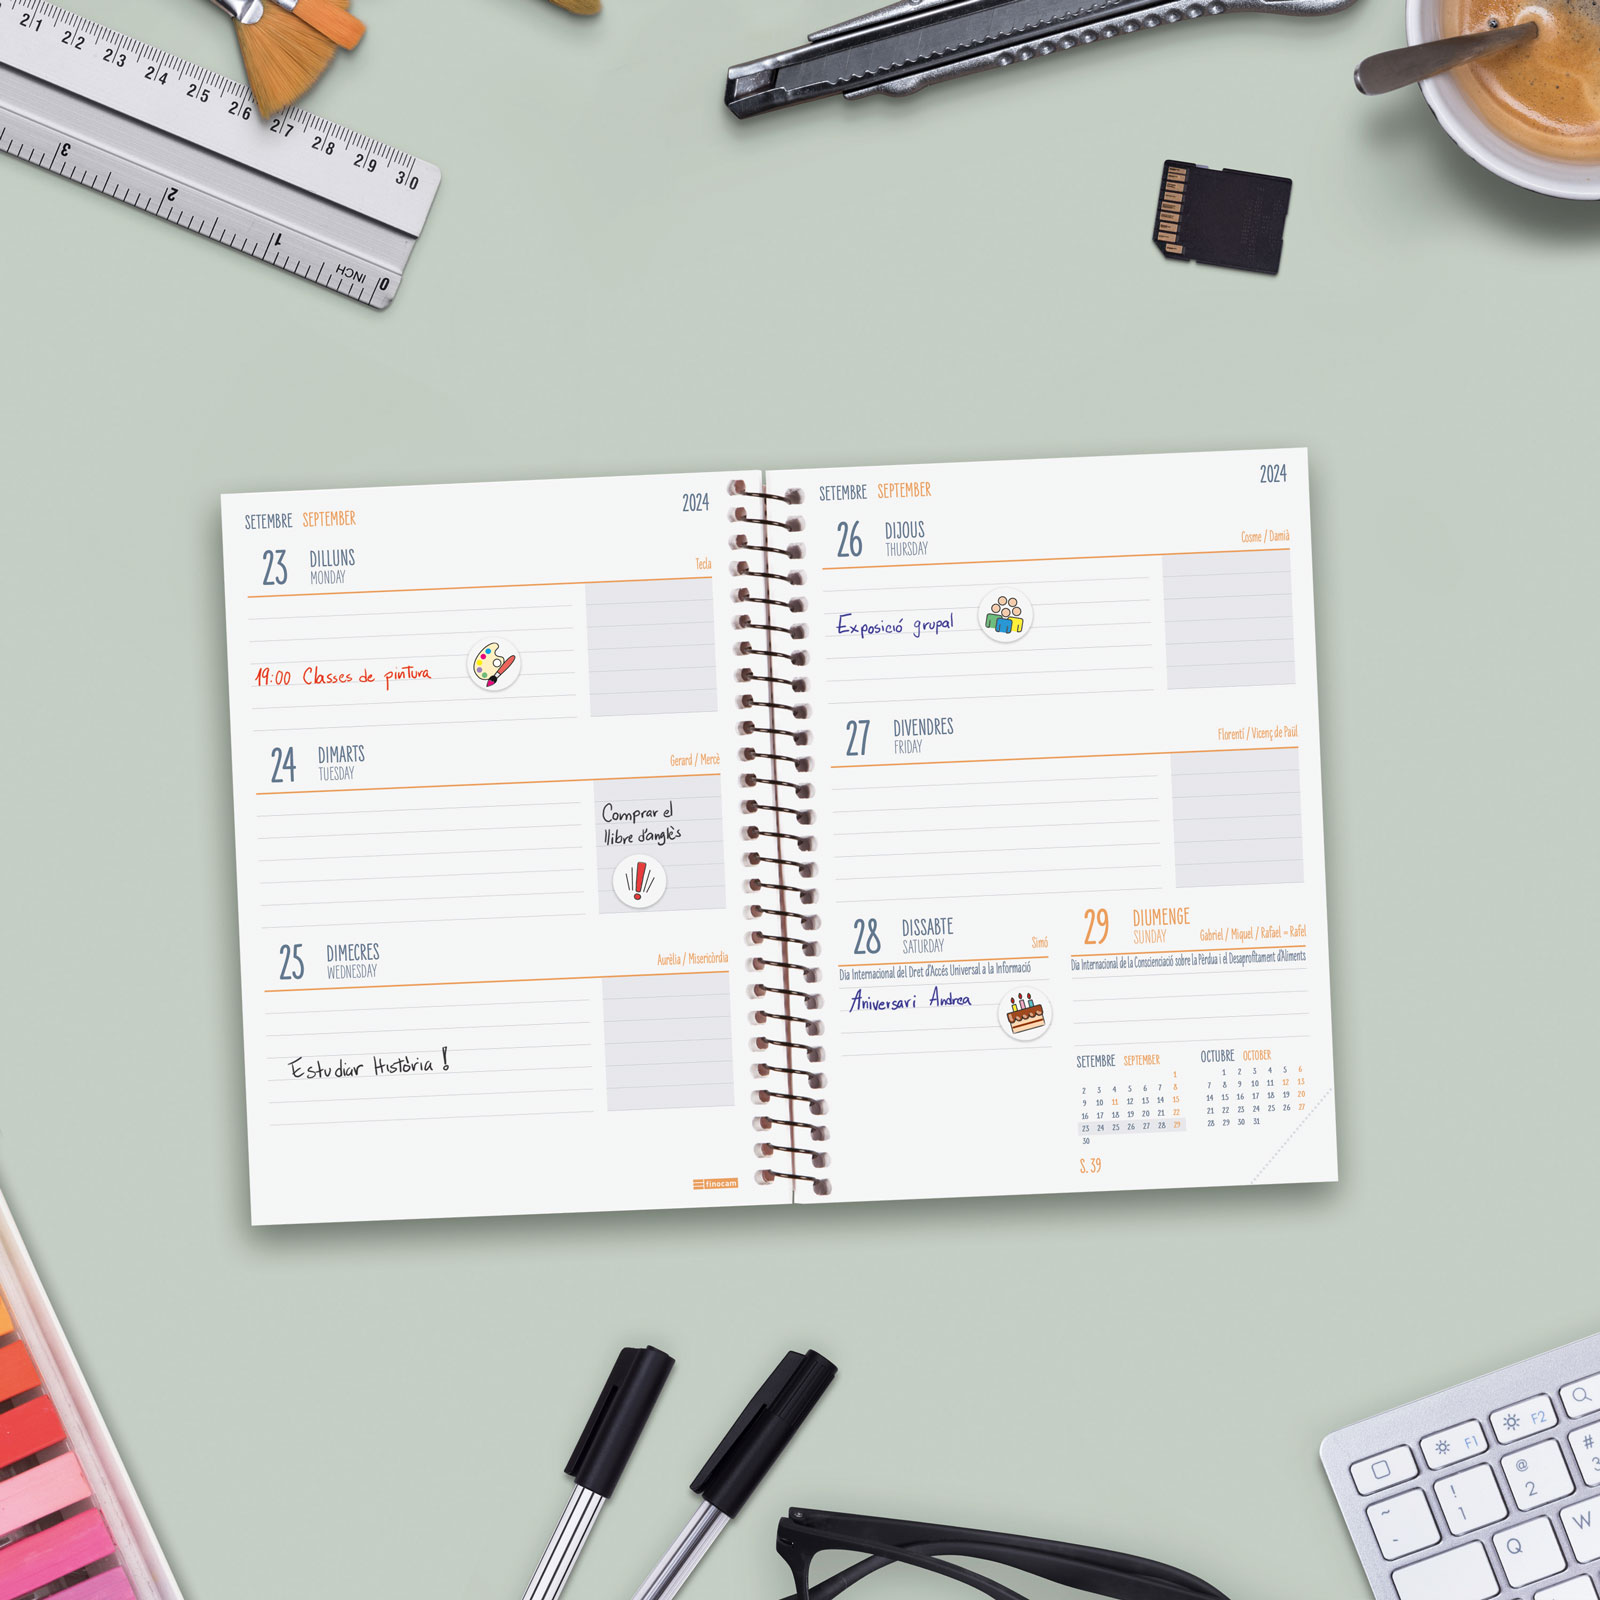 21 22 23 24 25 26 27 28 29 30
3 2 1 0
INCH
SETEMBRE SEPTEMBER 2024
23 DILLUNS
MONDAY
Tecla
19:00 Classes de pintura
24 DIMARTS
TUESDAY
Gerard / Mercè
Comprar el
llibre d'anglès
25 DIMECRES
WEDNESDAY
Aurèlia / Misericòrdia
Estudiar Història!
finocam
SETEMBRE SEPTEMBER 2024
26 DIJOUS
THURSDAY
Cosme / Damià
Exposició grupal
27 DIVENDRES
FRIDAY
Florentí / Vicenç de Paül
28 DISSABTE
SATURDAY
Simó
Dia Internacional del Dret d'Accés Universal a la Informació
Aniversari Andrea
29 DIUMENGE
SUNDAY
Gabriel / Miquel / Rafael - Rafel
Dia Internacional de la Conscienciació sobre la Pèrdua i el Desaprofitament d'Aliments
SETEMBRE SEPTEMBER
1
2 3 4 5 6 7 8
9 10 11 12 13 14 15
16 17 18 19 20 21 22
23 24 25 26 27 28 29
30
OCTUBRE OCTOBER
1 2 3 4 5 6
7 8 9 10 11 12 13
14 15 16 17 18 19 20
21 22 23 24 25 26 27
28 29 30 31
S. 39
F1 F2
~ ! @ #
1 2 3
Q W